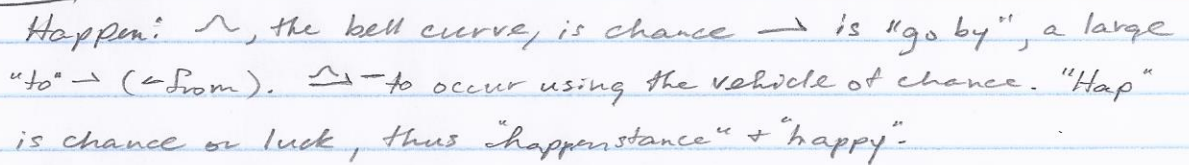 Happen: ⏜, the bell curve, is chance ⇀ is "go by", a large
"to" ⇀ (↼ from). – to occur using the vehicle of chance. "Hap"
is chance or luck, thus "happenstance" + "happy".